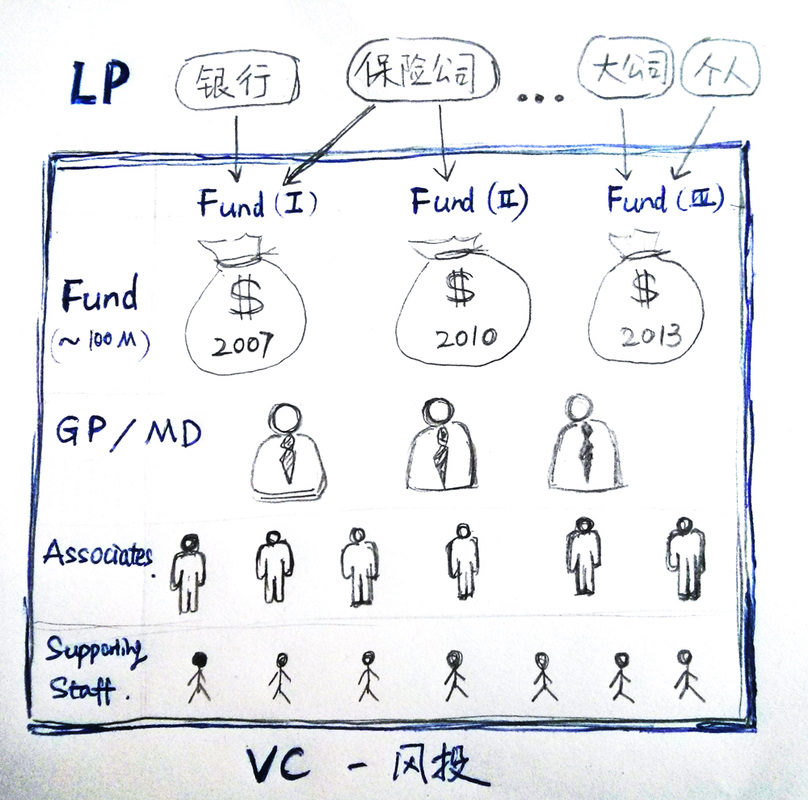 LP 银行 保险公司 ... 大公司 个人
Fund (I) Fund (II) Fund (III)
Fund
(~100M)
$ $ $
2007 2010 2013
GP/MD
Associates.
Supporting
Staff.
VC - 风投